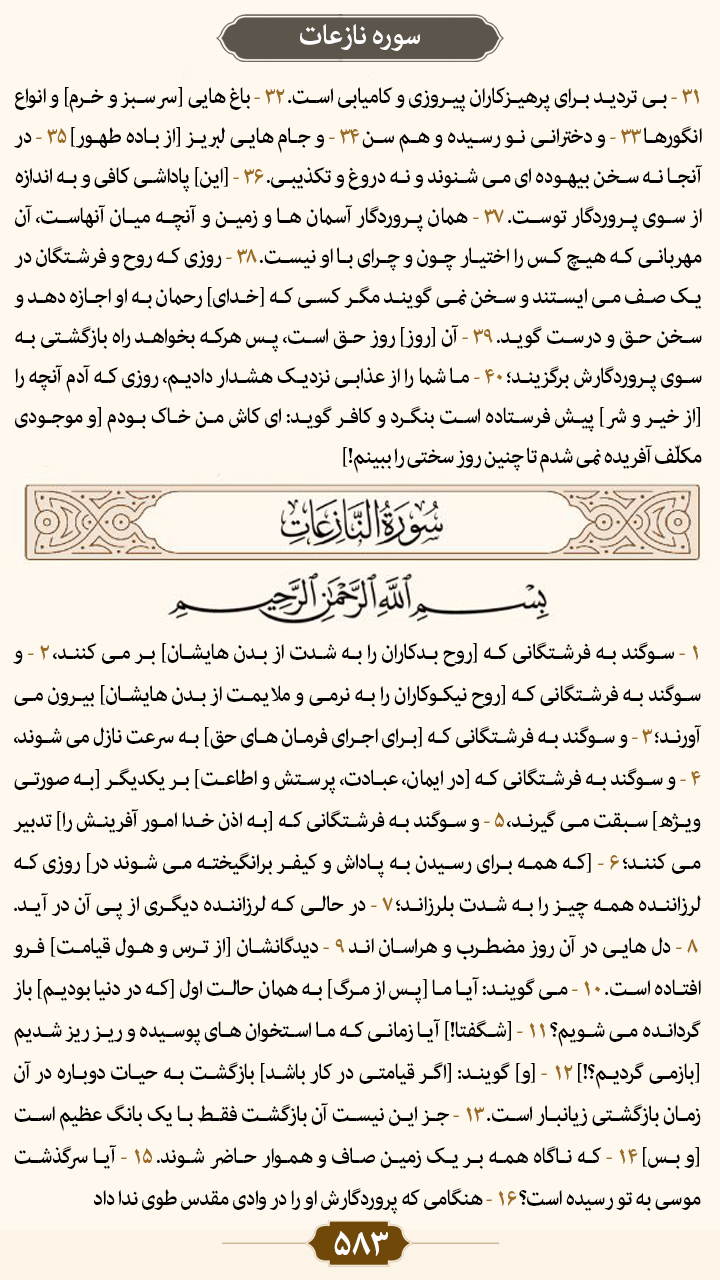 سوره نازعات
۳۱ - بی تردید برای پرهیزکاران پیروزی و کامیابی است. ۳۲ - باغ هایی [سر سبز و خرم] و انواع
انگورها ۳۳ - و دخترانی نو رسیده و هم سن ۳۴ - و جام هایی لبریز [از باده طهور] ۳۵ - در
آنجا نه سخن بیهوده ای می شنوند و نه دروغ و تکذیبی. ۳۶ - [این] پاداشی کافی و به اندازه
از سوی پروردگار توست. ۳۷ - همان پروردگار آسمان ها و زمین و آنچه میان آنهاست، آن
مهربانی که هیچ کس را اختیار چون و چرای با او نیست. ۳۸ - روزی که روح و فرشتگان در
یک صف می ایستند و سخن نمی گویند مگر کسی که [خدای] رحمان به او اجازه دهد و
سخن حق و درست گوید. ۳۹ - آن [روز] روز حق است، پس هرکه بخواهد راه بازگشتی به
سوی پروردگارش برگزیند؛ ۴۰ - ما شما را از عذابی نزدیک هشدار دادیم، روزی که آدم آنچه را
[از خیر و شر] پیش فرستاده است بنگرد و کافر گوید: ای کاش من خاک بودم [و موجودی
مکلّف آفریده نمی شدم تا چنین روز سختی را ببینم!]
سُورَةُ النَّازِعَاتِ
بِسْمِ ٱللَّهِ ٱلرَّحْمَٰنِ ٱلرَّحِيمِ
۱ - سوگند به فرشتگانی که [روح بدکاران را به شدت از بدن هایشان] بر می کنند، ۲ - و
سوگند به فرشتگانی که [روح نیکوکاران را به نرمی و ملایمت از بدن هایشان] بیرون می
آورند؛ ۳ - و سوگند به فرشتگانی که [برای اجرای فرمان های حق] به سرعت نازل می شوند،
۴ - و سوگند به فرشتگانی که [در ایمان، عبادت، پرستش و اطاعت] بر یکدیگر [به صورتی
ویژه] سبقت می گیرند، ۵ - و سوگند به فرشتگانی که [به اذن خدا امور آفرینش را] تدبیر
می کنند؛ ۶ - [که همه برای رسیدن به پاداش و کیفر برانگیخته می شوند در] روزی که
لرزاننده همه چیز را به شدت بلرزاند؛ ۷ - در حالی که لرزاننده دیگری از پی آن در آید.
۸ - دل هایی در آن روز مضطرب و هراسان اند ۹ - دیدگانشان [از ترس و هول قیامت] فرو
افتاده است. ۱۰ - می گویند: آیا ما [پس از مرگ] به همان حالت اول [که در دنیا بودیم] باز
گردانده می شویم؟ ۱۱ - [شگفتا!] آیا زمانی که ما استخوان های پوسیده و ریز ریز شدیم
[بازمی گردیم؟!] ۱۲ - [و] گویند: [اگر قیامتی در کار باشد] بازگشت به حیات دوباره در آن
زمان بازگشتی زیانبار است. ۱۳ - جز این نیست آن بازگشت فقط با یک بانگ عظیم است
[و بس] ۱۴ - که ناگاه همه بر یک زمین صاف و هموار حاضر شوند. ۱۵ - آیا سرگذشت
موسی به تو رسیده است؟ ۱۶ - هنگامی که پروردگارش او را در وادی مقدس طوی ندا داد
۵۸۳